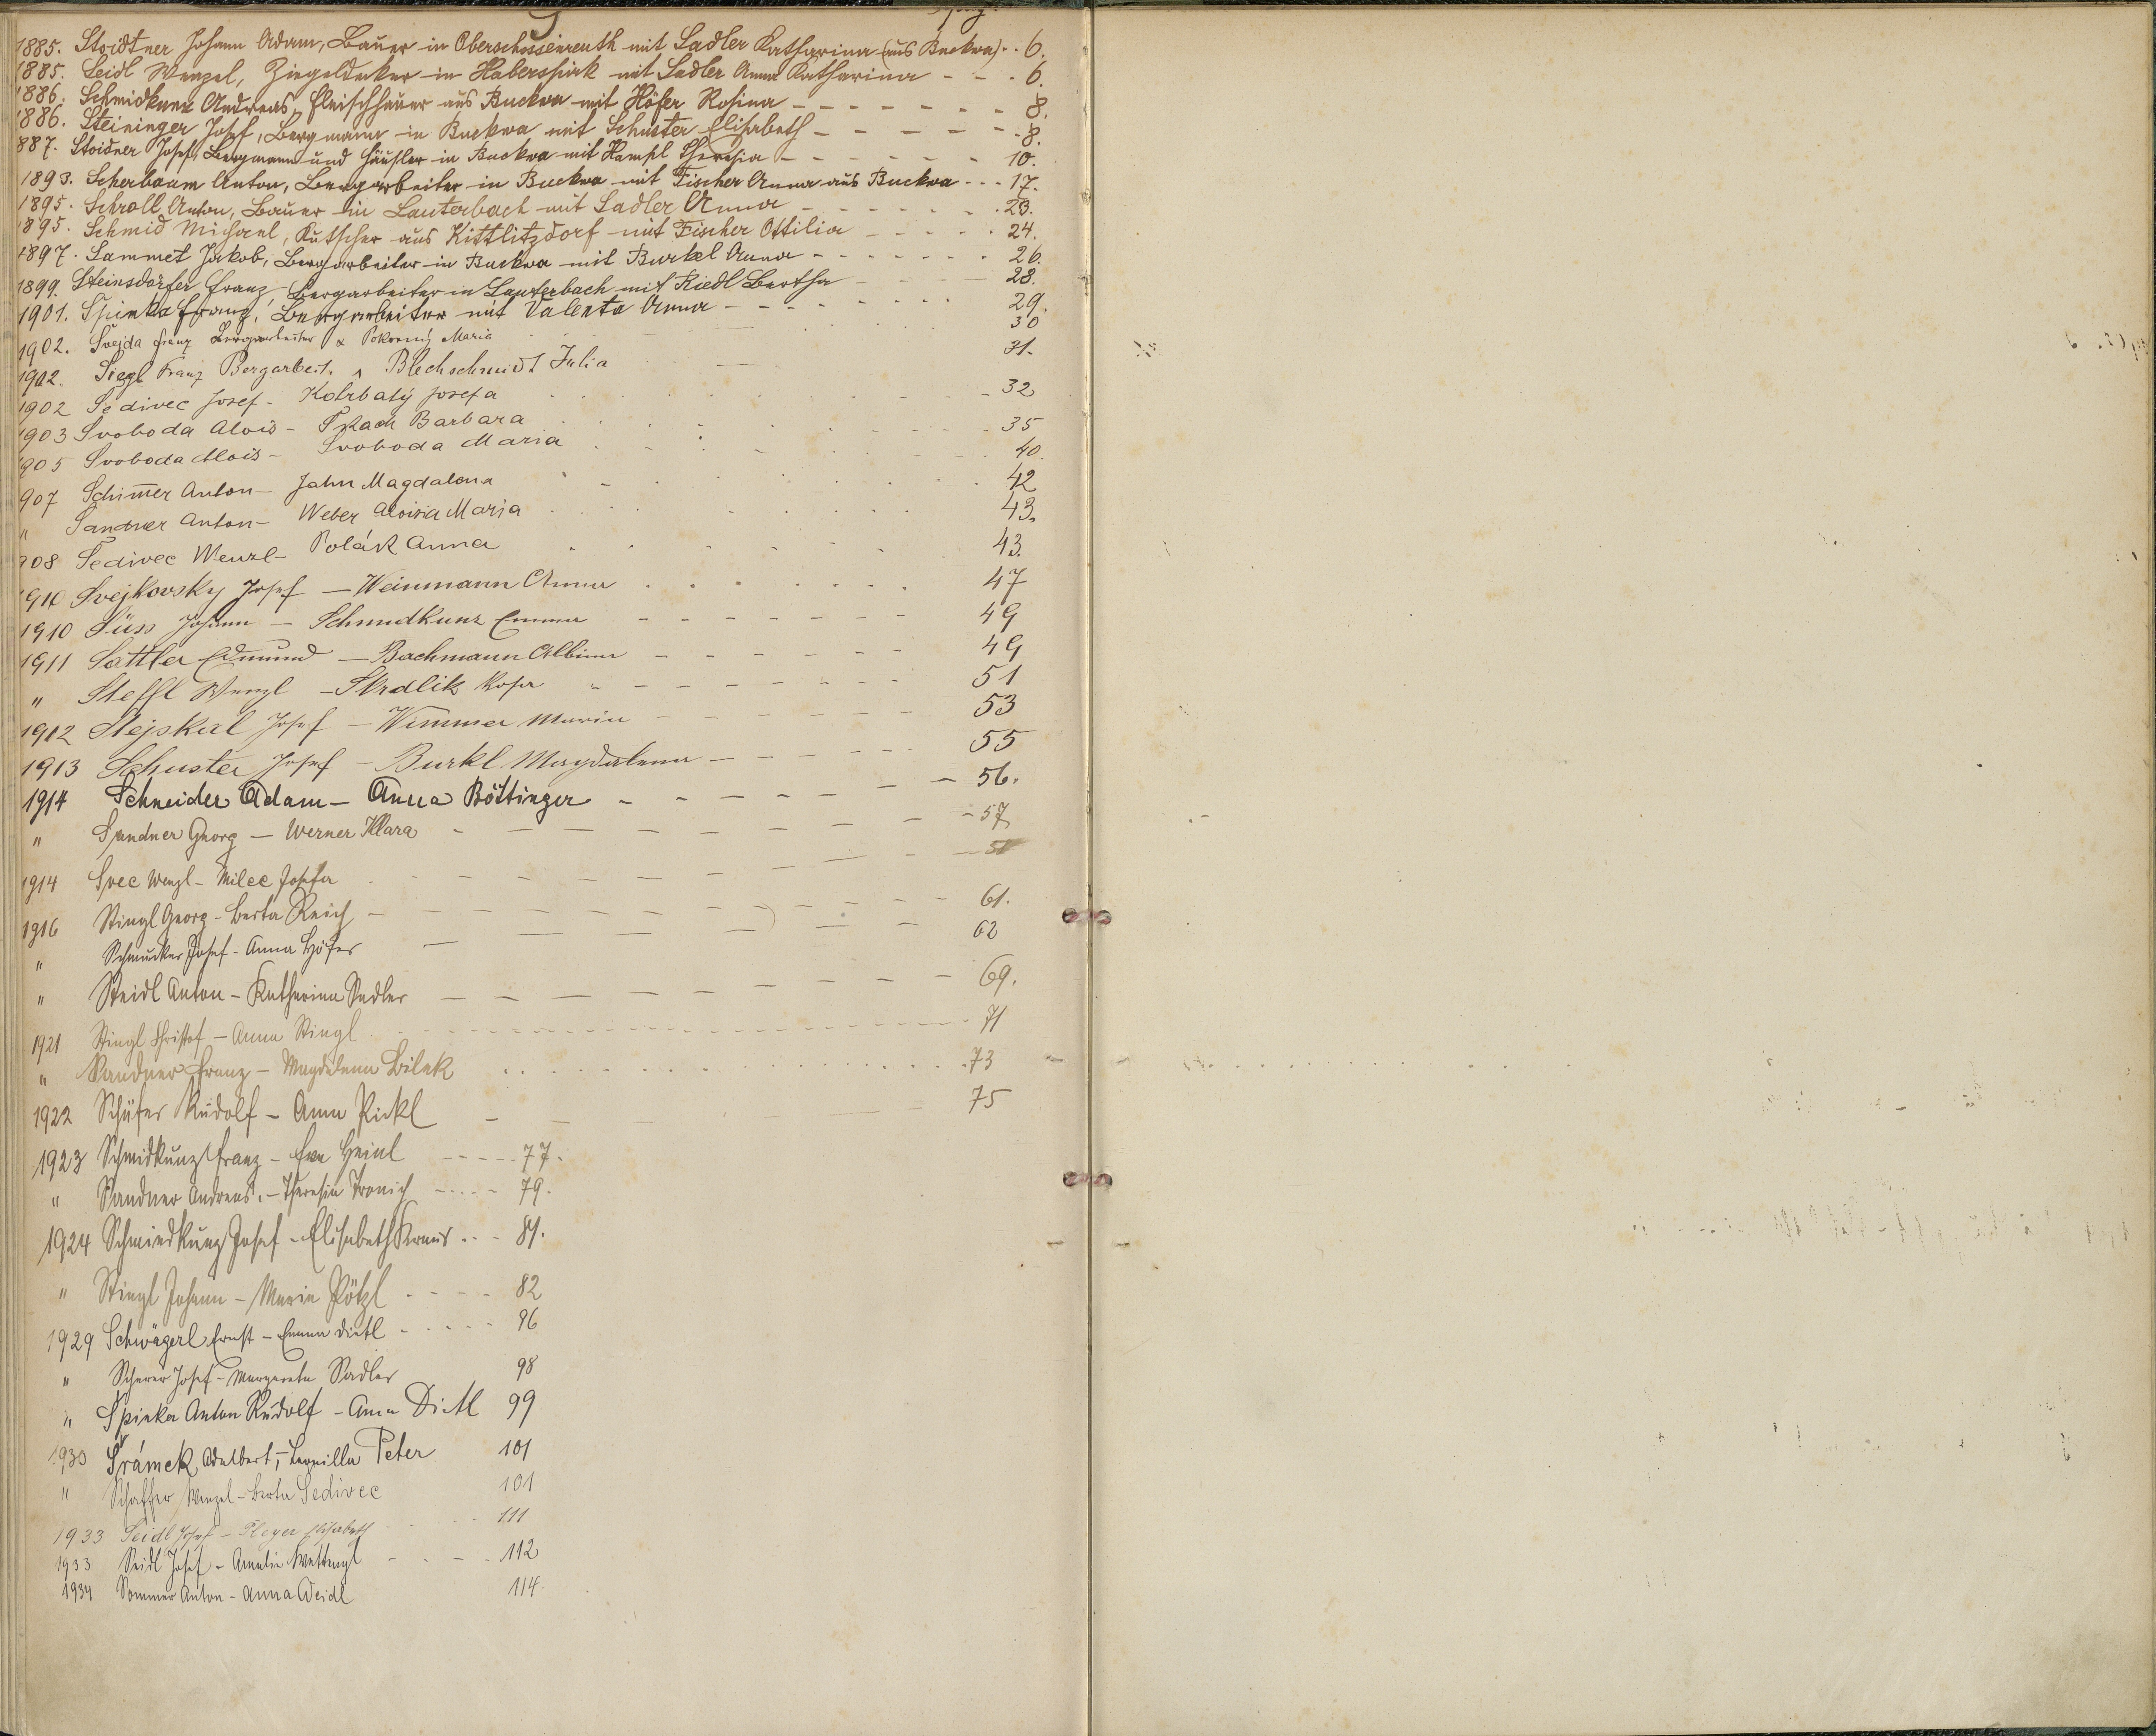 1885. Stoidtner Johann Adam, Bauer in Oberschossenreuth mit Sadler Katharina (aus Buckwa) . . 6.
1885. Seidl Wenzel, Ziegeldecker in Haberspirk mit Sadler Anna Katharina - - . 6.
1886. Schmidkunz Andreas, Fleischhauer aus Buckwa mit Höfer Rosina - - - - - - - 8.
1886. Steininger Josef, Bergmann in Buckwa mit Schuster Elisabeth - - - - - - 8.
887. Stoidner Josef, Bergmann und Häusler in Buckwa mit Hampl Theresia - - - - - - 10.
1893. Scherbaum Anton, Bergarbeiter in Buckwa mit Fischer Anna aus Buckwa - - - 17.
1895. Schroll Anton, Bauer in Lauterbach mit Sadler Anna - - - - - - 23.
1895. Schmid Michael, Kutscher aus Kittlitzdorf mit Fischer Ottilia - - - - - 24.
1897. Sammet Jakob, Bergarbeiter in Buckwa mit Burkel Anna - - - - - - - 26.
1899. Steinsdörfer Franz Bergarbeiter in Lauterbach mit Riedl Bertha - - - 28.
1901. Spinka Franz, Bergarbeiter mit Valenta Anna - - - - - - - 29.
1902. Švejda Franz Bergarbeiter & Pokorný Maria 30
1902. Siegl Franz Bergarbeit. Blechschmidt Julia 31.
1902 Šedivec Josef - Kohrbatý Josefa 32
1903 Svoboda Alois - Tkach Barbara 35
905 Svoboda Alois - Svoboda Maria 40.
907 Schim̅er Anton - Jahn Magdalena 42
" Sandner Anton - Weber Aloisia Maria 43.
908 Šedivec Wenzl - Polák Anna 43.
1910 Svejkovsky Josef - Weinmann Anna 47
1910 Süss Johann - Schmidkunz Emma 49
1911 Sattler Edmund - Bachmann Albina 49
" Steffl Wenzl - Skrdlik Rosa 51
1912 Stejskal Josef - Wimmer Maria 53
1913 Schuster Josef - Burkl Magdalena 55
1914 Schneider Adam - Anna Böttinger - - - - - - 56.
" Sandner Georg - Werner Klara - - - - - - 57
1914 Svec Wenzl - Milec Josefa
1916 Stingl Georg - Berta Reich - - - - - - 61.
" Schmucker Josef - Anna Höfer 62
" Steidl Anton - Katharina Sadler - - - - - - 69.
1921 Stingl Christof - Anna Stingl 71
" Sandner Franz - Magdalena Bilek 73
1922 Schäfer Rudolf - Anna Pickl 75
1923 Schmidkunz Franz - Eva Heinl - - - - 77.
" Sandner Andreas. - Theresia Tronich - - - - 79.
1924 Schmiedkunz Josef - Elisabeth Kraus . . - 81.
" Stingl Johann - Maria Pötzl - - - - 82
1929 Schwägerl Ernst - Emma Dietl - - - - 96
" Scherer Josef - Margareta Sadler 98
" Spinka Anton Rudolf - Anna Dietl 99
1930 Šrámek Adalbert, - Peter 101
" Schaffer Wenzel - Berta Sedivec 101
1933 Seidl Josef - Pleyer Elisabeth 111
1933 Seidl Josef - Amalie Wettengl - - - - 112
1934 Sommer Anton - Anna Weidl 114.